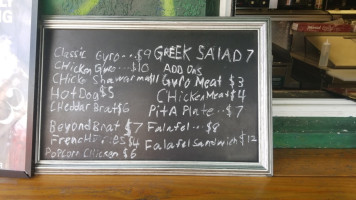 Classic Gyro...$9
Chicken Gyro...$10
Chick Shawarma $11
Hot Dog $5
Cheddar Brat $6
Beyond Brat $7
French Fries $4
Popcorn Chicken $6
GREEK SALAD 7
ADD ONS
Gyro Meat $3
Chicken Meat $4
Pita Plate..$7
Falafel..$8
Falafel Sandwich $12